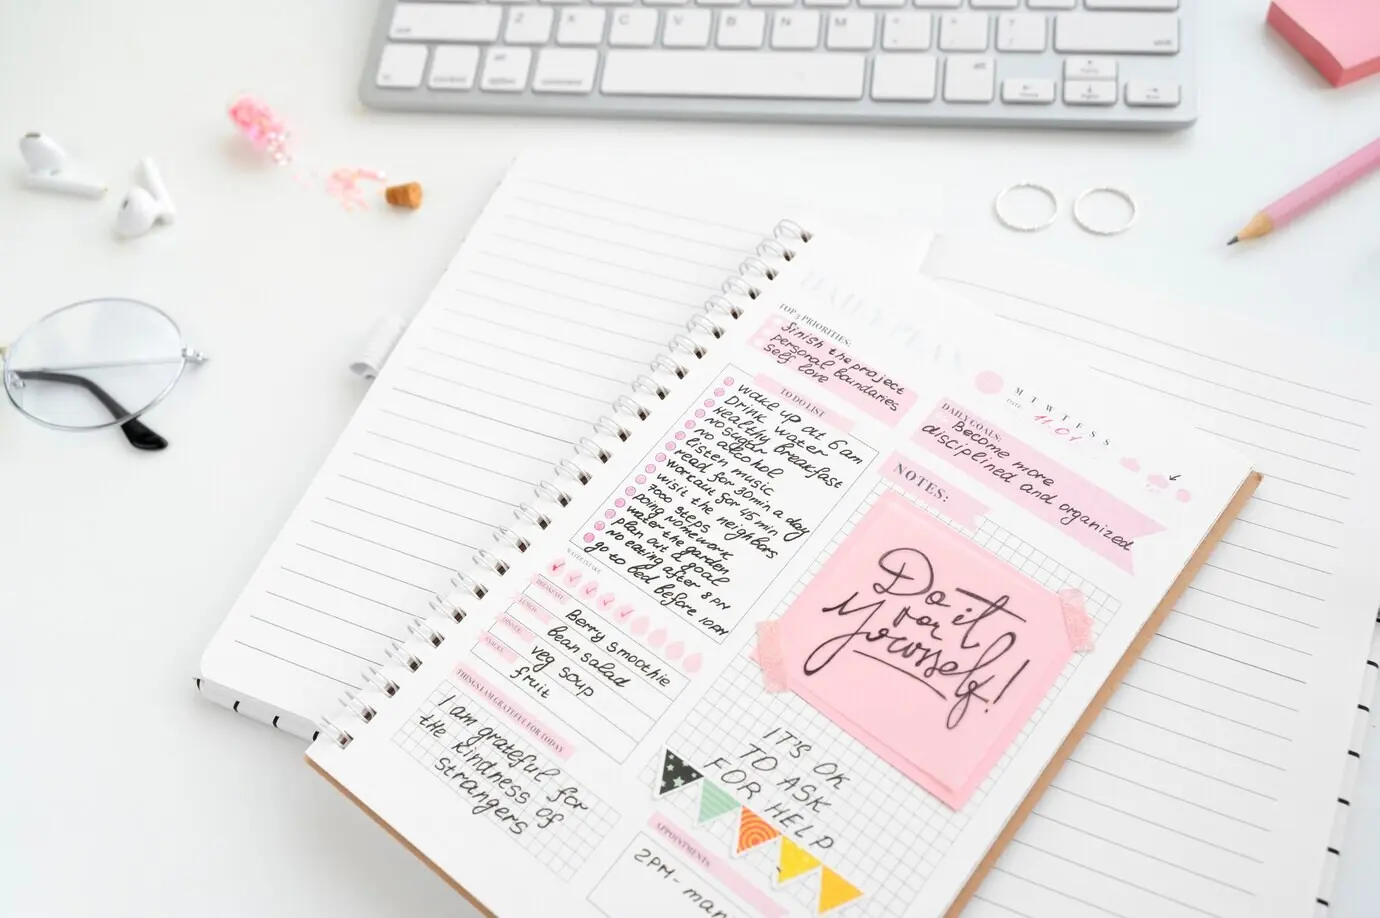 Z X C V B N M
DAILY PLAN
TOP 3 PRIORITIES:
finish the project
personal boundaries
self love
M T W T F S S
DATE: 11.01
DAILY GOALS:
Become more
disciplined and organized
TO DO LIST
wake up at 6 am
Drink water
Healthy breakfast
no sugar
no alcohol
listen music
read for 30 min a day
workout for 45 min
wisit the neighbors
7000 steps
Doing Homework
water the garden
plan out a goal
No eating after 8 PM
go to bed before 10PM
NOTES:
Do it
for
Yourself!
IT'S OK
TO ASK
FOR HELP
WATER INTAKE
BREAKFAST
Berry smoothie
LUNCH
bean salad
DINNER
veg soup
SNACKS
fruit
THINGS I AM GRATEFUL FOR TODAY
I am grateful for
the kindness of
strangers
APPOINTMENTS
2PM - man